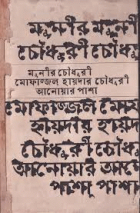 মুনীর মুনী
চৌধুরী চৌধু
মুনীর চৌধুরী
মোফাজ্জল হায়দার চৌধুরী
আনোয়ার পাশা
মোফাজ্জল মোফ
হায়দার হায়দা
চৌধুরী চৌধু
আনোয়ার আনো
পাশা পাশা